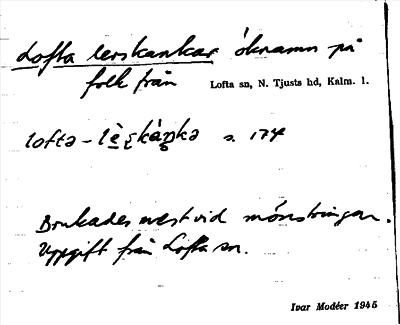 Lofta lerskankar öknamn på
folk från Lofta sn, N. Tjusts hd, Kalm. l.
lofta - lèrskáŋka s. 174
Brukades mest vid mönstringar.
Uppgift från Lofta sn.
Ivar Modéer 1945